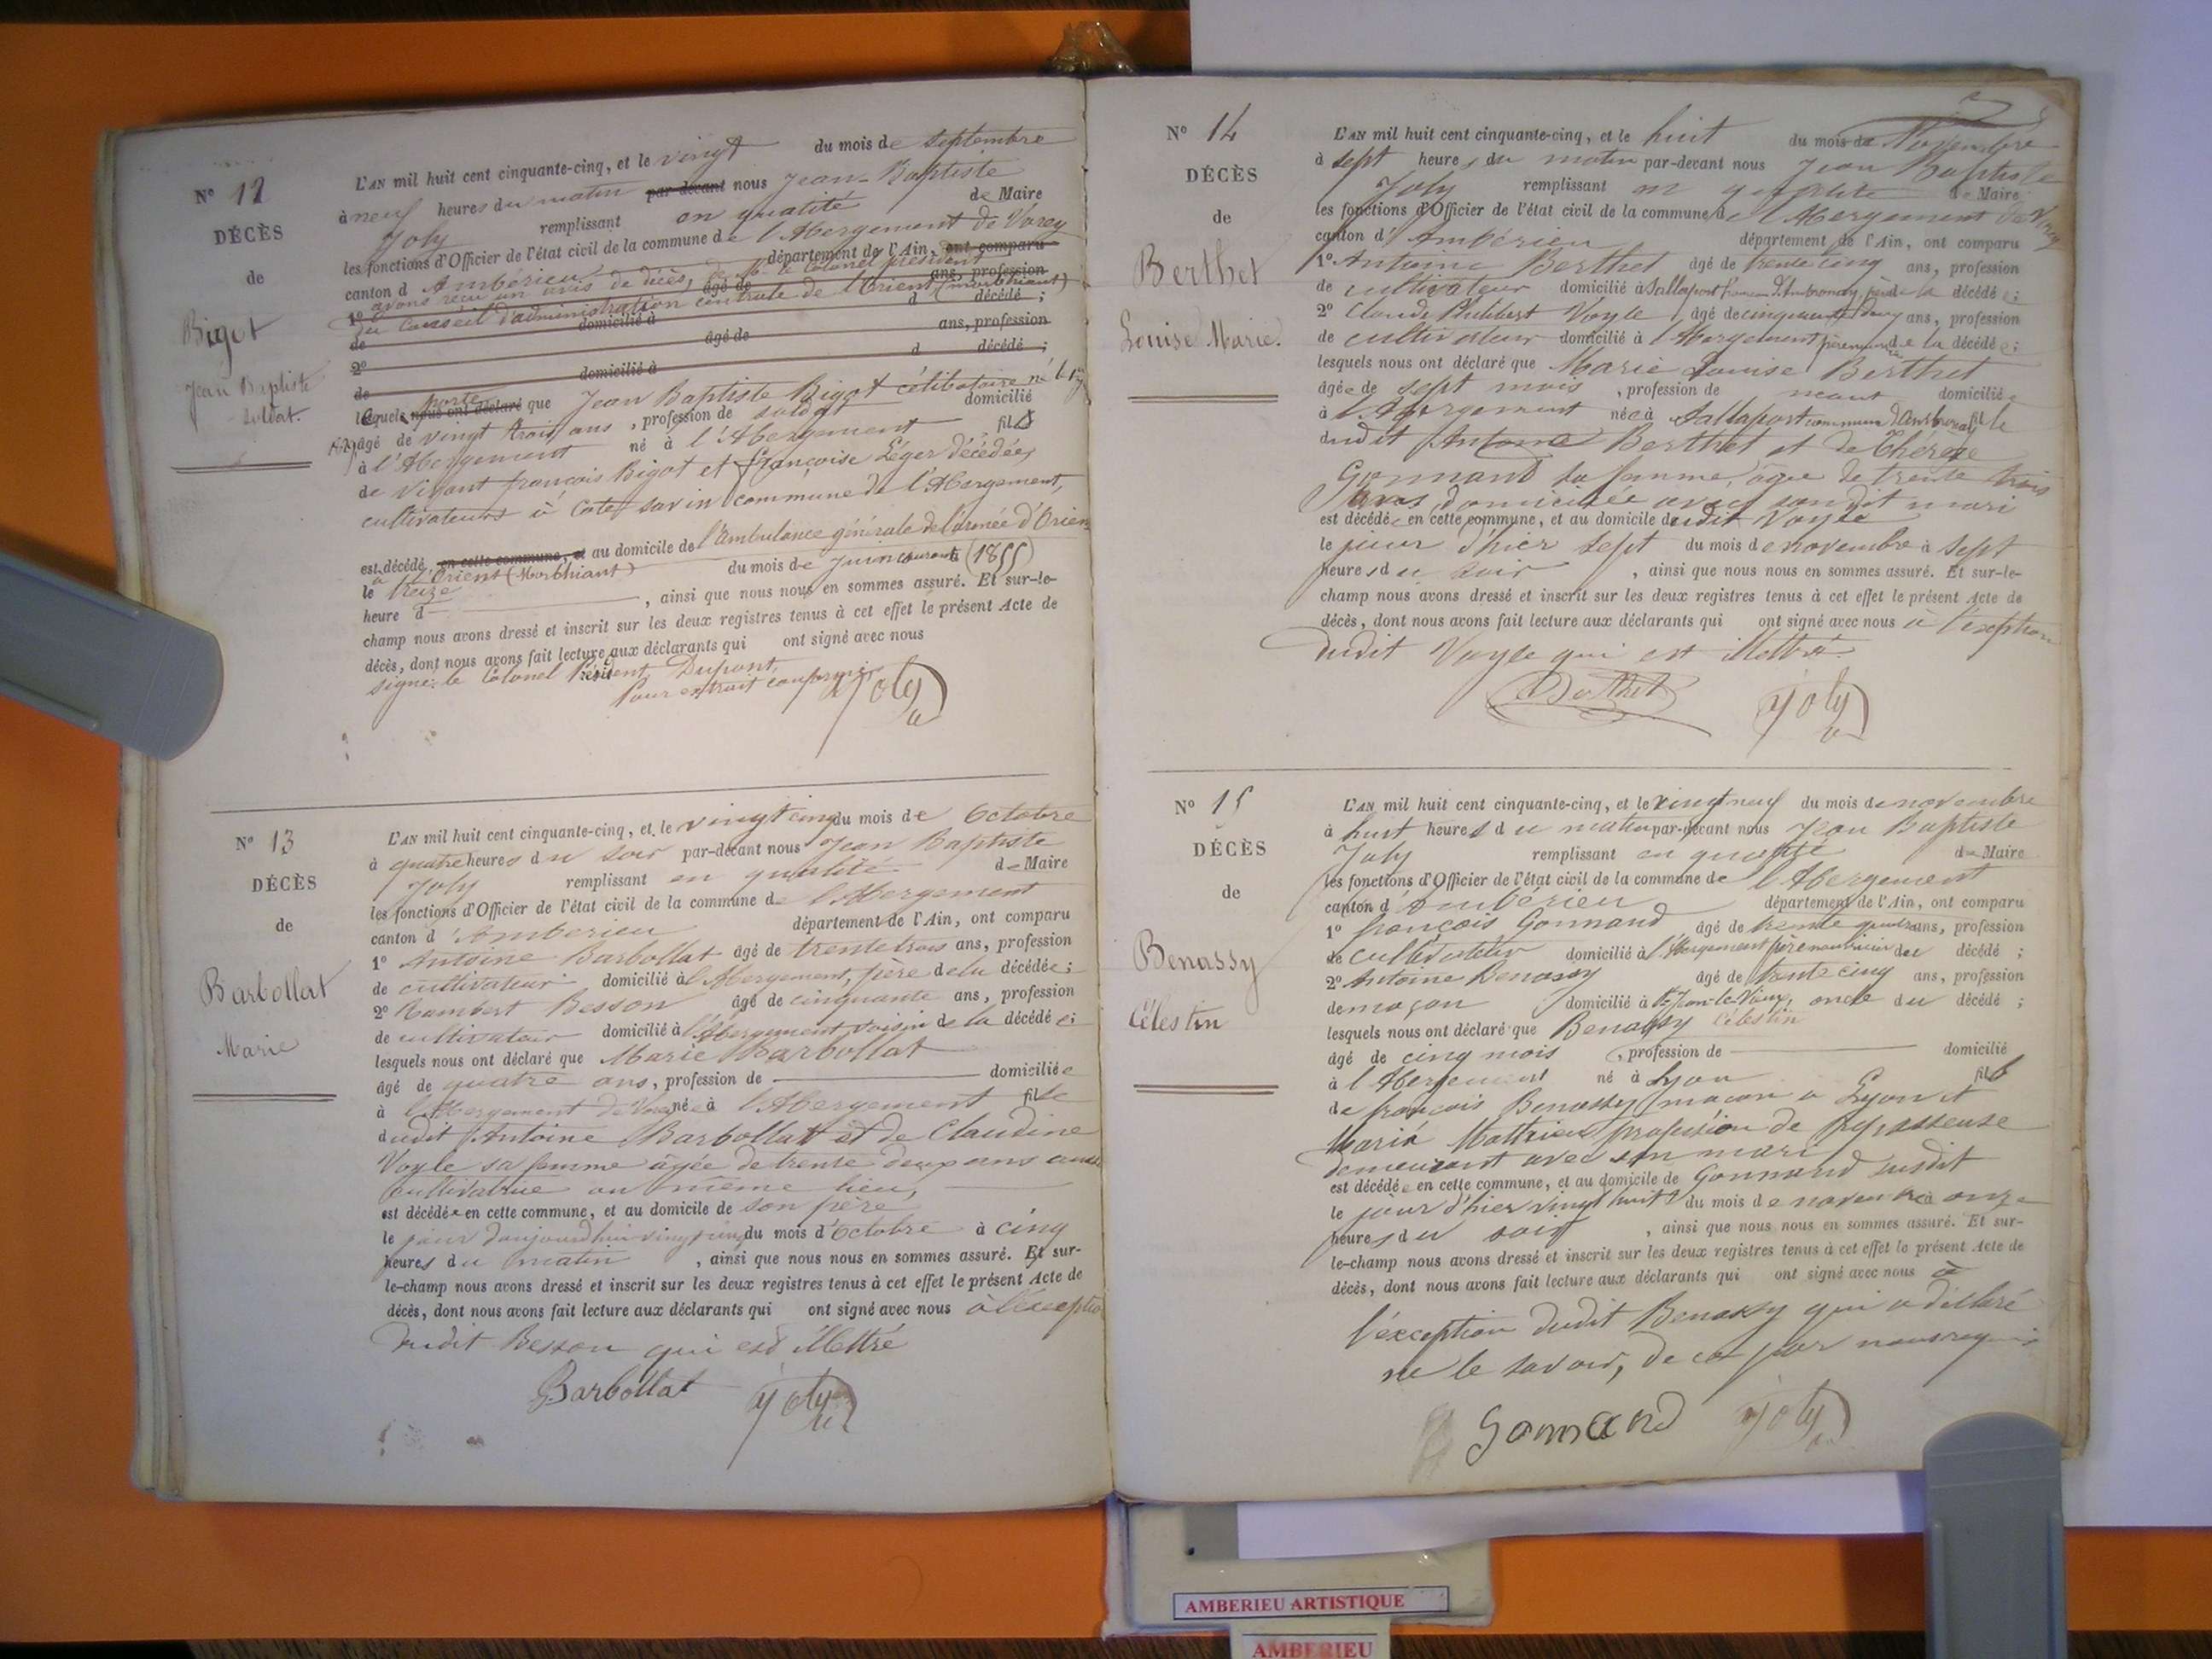 N° 12
DÉCÈS
de
Bigot
Jean Baptiste
soldat.
L'AN mil huit cent cinquante-cinq, et le vingt du mois de septembre
à neuf heures du matin par-devant nous Jean-Baptiste
Joly remplissant en qualité de Maire
les fonctions d'Officier de l'état civil de la commune de l'Abergement de Varey
canton d'Ambérieu département de l'Ain, ont comparu
avons reçu un avis de décès, de Mr le Colonel président
1° âgé de ans, profession
du Conseil d'administration centrale de l'Orient (morbhiant)
de domicilié à d décédé ;
2° âgé de ans, profession
de domicilié à d décédé ;
lequels porte nous ont déclaré que Jean Baptiste Bigot célibataire né le
âgé de vingt trois ans, profession de soldat domicilié
à l'Abergement né à l'Abergement fils
de Vivant françois Bigot et françoise Léger décédée,
cultivateurs à Cote savin commune de l'Abergement,
est décédé, en cette commune, et au domicile de l'ambulance générale de l'armée d'Orien
à l'Orient (Morbhiant)
le treize du mois de Juin courant (1855)
heure d , ainsi que nous nous en sommes assuré. Et sur-le-
champ nous avons dressé et inscrit sur les deux registres tenus à cet effet le présent Acte de
décès, dont nous avons fait lecture aux déclarants qui ont signé avec nous
signé: le Colonel Président, Dupont,
Pour extrait conforme
Joly
N° 13
DÉCÈS
de
Barbollat
Marie
L'AN mil huit cent cinquante-cinq, et le vingt cinq du mois de Octobre
à quatre heures du soir par-devant nous Jean Baptiste
Joly remplissant en qualité de Maire
les fonctions d'Officier de l'état civil de la commune de l'Abergement
canton d'Amberieu département de l'Ain, ont comparu
1° Antoine Barbollat âgé de trente trois ans, profession
de cultivateur domicilié à l'Abergement, père de la décédée ;
2° Rambert Besson âgé de cinquante ans, profession
de cultivateur domicilié à l'Abergement voisin de la décédée ;
lesquels nous ont déclaré que Marie Barbollat
âgé de quatre ans, profession de domiciliée
à l'Abergement de Varey née à l'Abergement fille
dudit Antoine Barbollat et de Claudine
Voyle sa femme âgée de trente deux ans aussi
cultivatrice au même lieu,
est décédée en cette commune, et au domicile de son père
le jour d'aujourdhui vingt cinq du mois d'Octobre à cinq
heures du matin , ainsi que nous nous en sommes assuré. Et sur-
le-champ nous avons dressé et inscrit sur les deux registres tenus à cet effet le présent Acte de
décès, dont nous avons fait lecture aux déclarants qui ont signé avec nous à l'exceptio
dudit Besson qui est illettré
Barbollat Joly
N° 14
DÉCÈS
de
Berthet
Louise Marie.
L'AN mil huit cent cinquante-cinq, et le huit du mois de Novembre
à sept heures du matin par-devant nous Jean Baptiste
Joly remplissant en qualité de Maire
les fonctions d'Officier de l'état civil de la commune de l'Abergement de Varey
canton d'Ambérieu département de l'Ain, ont comparu
1° Antoine Berthet âgé de trente cinq ans, profession
de cultivateur domicilié à Sallaport commune d'Ambronay, père de la décédée ;
2° Claude Philibert Voyle âgé de cinquante deux ans, profession
de cultivateur domicilié à l'Abergement de la décédée ;
lesquels nous ont déclaré que Marie Louise Berthet
âgée de sept mois , profession de néant domiciliée
à l'Abergement née à Sallaport commune d'Ambronay fille
dudit Antoine Berthet et de Thérèse
Gonnand sa femme, âgée de trente trois
ans, domiciliée avec sondit mari
est décédée en cette commune, et au domicile dudit Voyle
le jour d'hier sept du mois de novembre à sept
heures du soir , ainsi que nous nous en sommes assuré. Et sur-le-
champ nous avons dressé et inscrit sur les deux registres tenus à cet effet le présent Acte de
décès, dont nous avons fait lecture aux déclarants qui ont signé avec nous à l'exeption
dudit Voyle qui est illettré.
Berthet Joly
N° 15
DÉCÈS
de
Benassy
Célestin
L'AN mil huit cent cinquante-cinq, et le vingt neuf du mois de novembre
à huit heures du matin par-devant nous Jean Baptiste
Joly remplissant en qualité de Maire
les fonctions d'Officier de l'état civil de la commune de l'Abergement
canton d'Ambérieu département de l'Ain, ont comparu
1° françois Gonnand âgé de trente quatre ans, profession
de cultivateur domicilié à l'Abergement père nourricier du décédé ;
2° Antoine Benassy âgé de trente cinq ans, profession
de maçon domicilié à St Jean-le-Vieux, oncle du décédé ;
lesquels nous ont déclaré que Benassy Célestin
âgé de cinq mois , profession de domicilié
à l'Abergement né à Lyon fils
de françois Benassy maçon à Lyon et
Marie Mathieu profession de Repasseuse
demeurant avec son mari
est décédé en cette commune, et au domicile de Gonnand susdit
le jour d'hier vingt huit du mois de novembre à onze
heures du soir , ainsi que nous nous en sommes assuré. Et sur-
le-champ nous avons dressé et inscrit sur les deux registres tenus à cet effet le présent Acte de
décès, dont nous avons fait lecture aux déclarants qui ont signé avec nous à
l'éxception dudit Benassy qui a déclaré
ne le savoir, de ce par nous requis
Gonnand Joly
AMBERIEU ARTISTIQUE
AMBERIEU